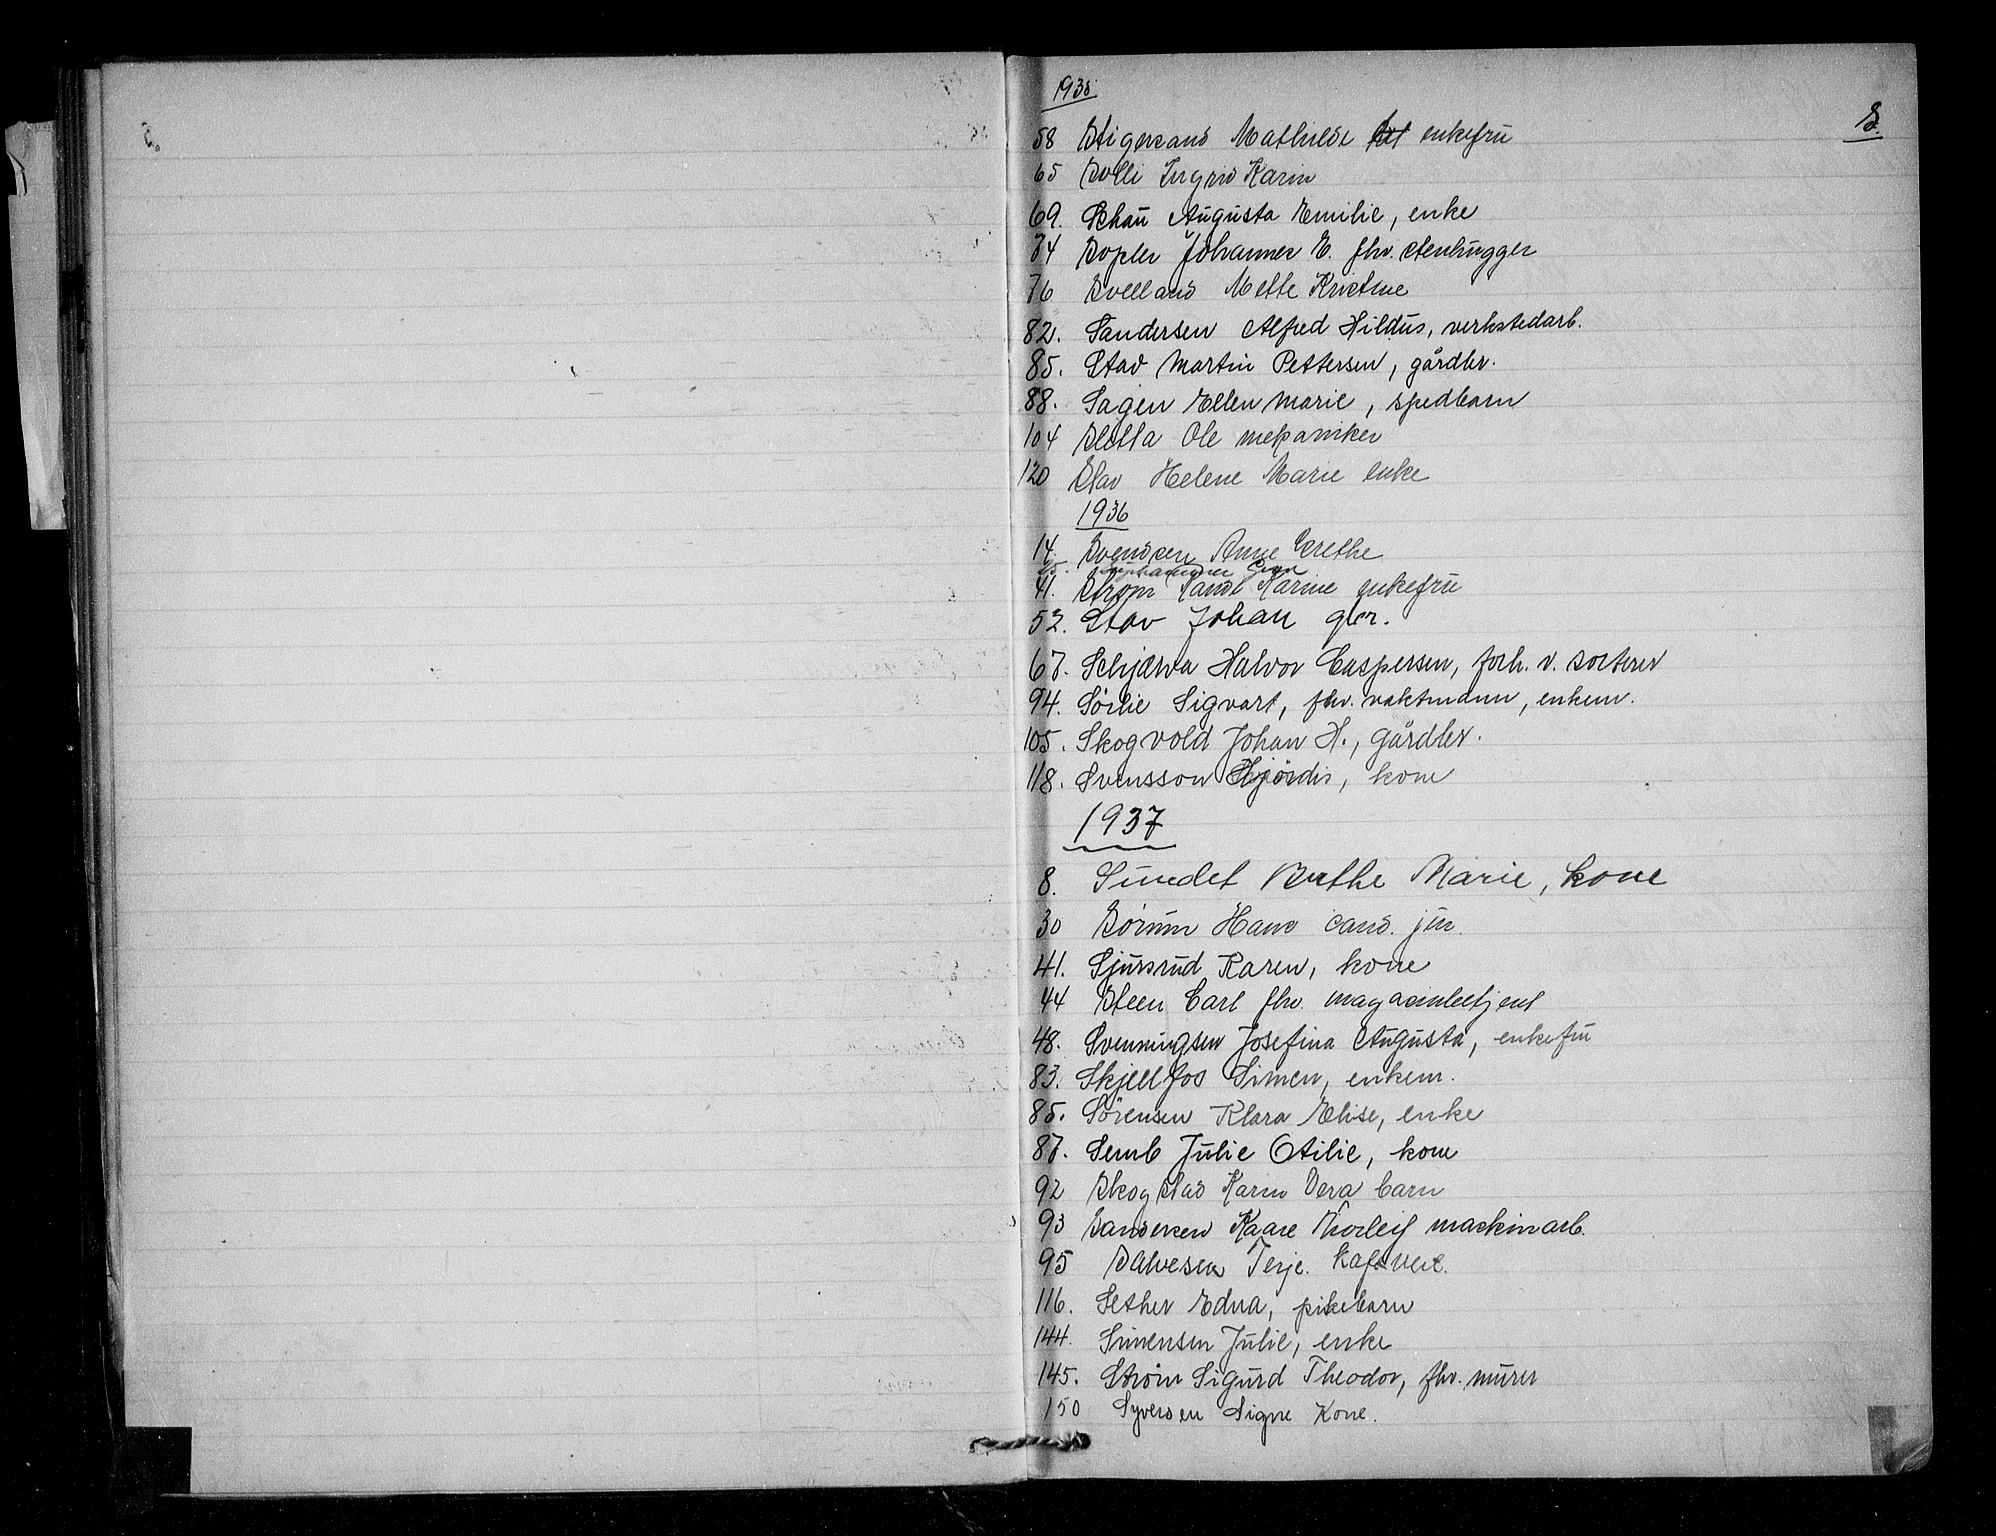 1935
S.
58 Stigersand Mathilde enkefru
65 Solli Ingrid Karin
69. Schau Augusta Emilie, enke
74 Sopler Johannes E. fhv. stenhugger
76 Svelland Mette Kristine
82. Sandersen Alfred Hildus, verkstedarb.
85. Stav Martin Pettersen, gårdbr.
88. Sagen Ellen Marie, spedbarn
104 Sletta Ole mekaniker
120 Stav Helene Marie enke
1936
14. Svendsen Anne Grethe
25. Gran
41. Strøm Randi Karine enkefru
52. Stav Johan gbr.
67. Schjærva Halvor Caspersen, forh. v. sorterer
94. Sörlie Sigvart, fhv. vaktmann, enkem.
105. Skogvold Johan H., gårdbr.
118. Svensson Hjördis, kone
1937
8. Sundet Berthe Marie, kone
30 Sörum Hans cand. jur.
41. Sjursrud Karen, kone
44 Steen Carl fhv. magasinbetjent
48. Svenningsen Josefina Augusta, enkefru
83. Skjellfos Simen, enkem.
85. Sörensen Klara Elise, enke
87. Semb Julie Otilie, kone
92 Skogstad Karin Vera barn
93 Sandersen Kaare Thorleif maskinarb.
95 Salvesen Terje. kafevert.
116. Sether Edna, pikebarn
144. Simensen Julie, enke
145. Strøm Sigurd Theodor, fhv. murer
150 Syversen Signe Kone.